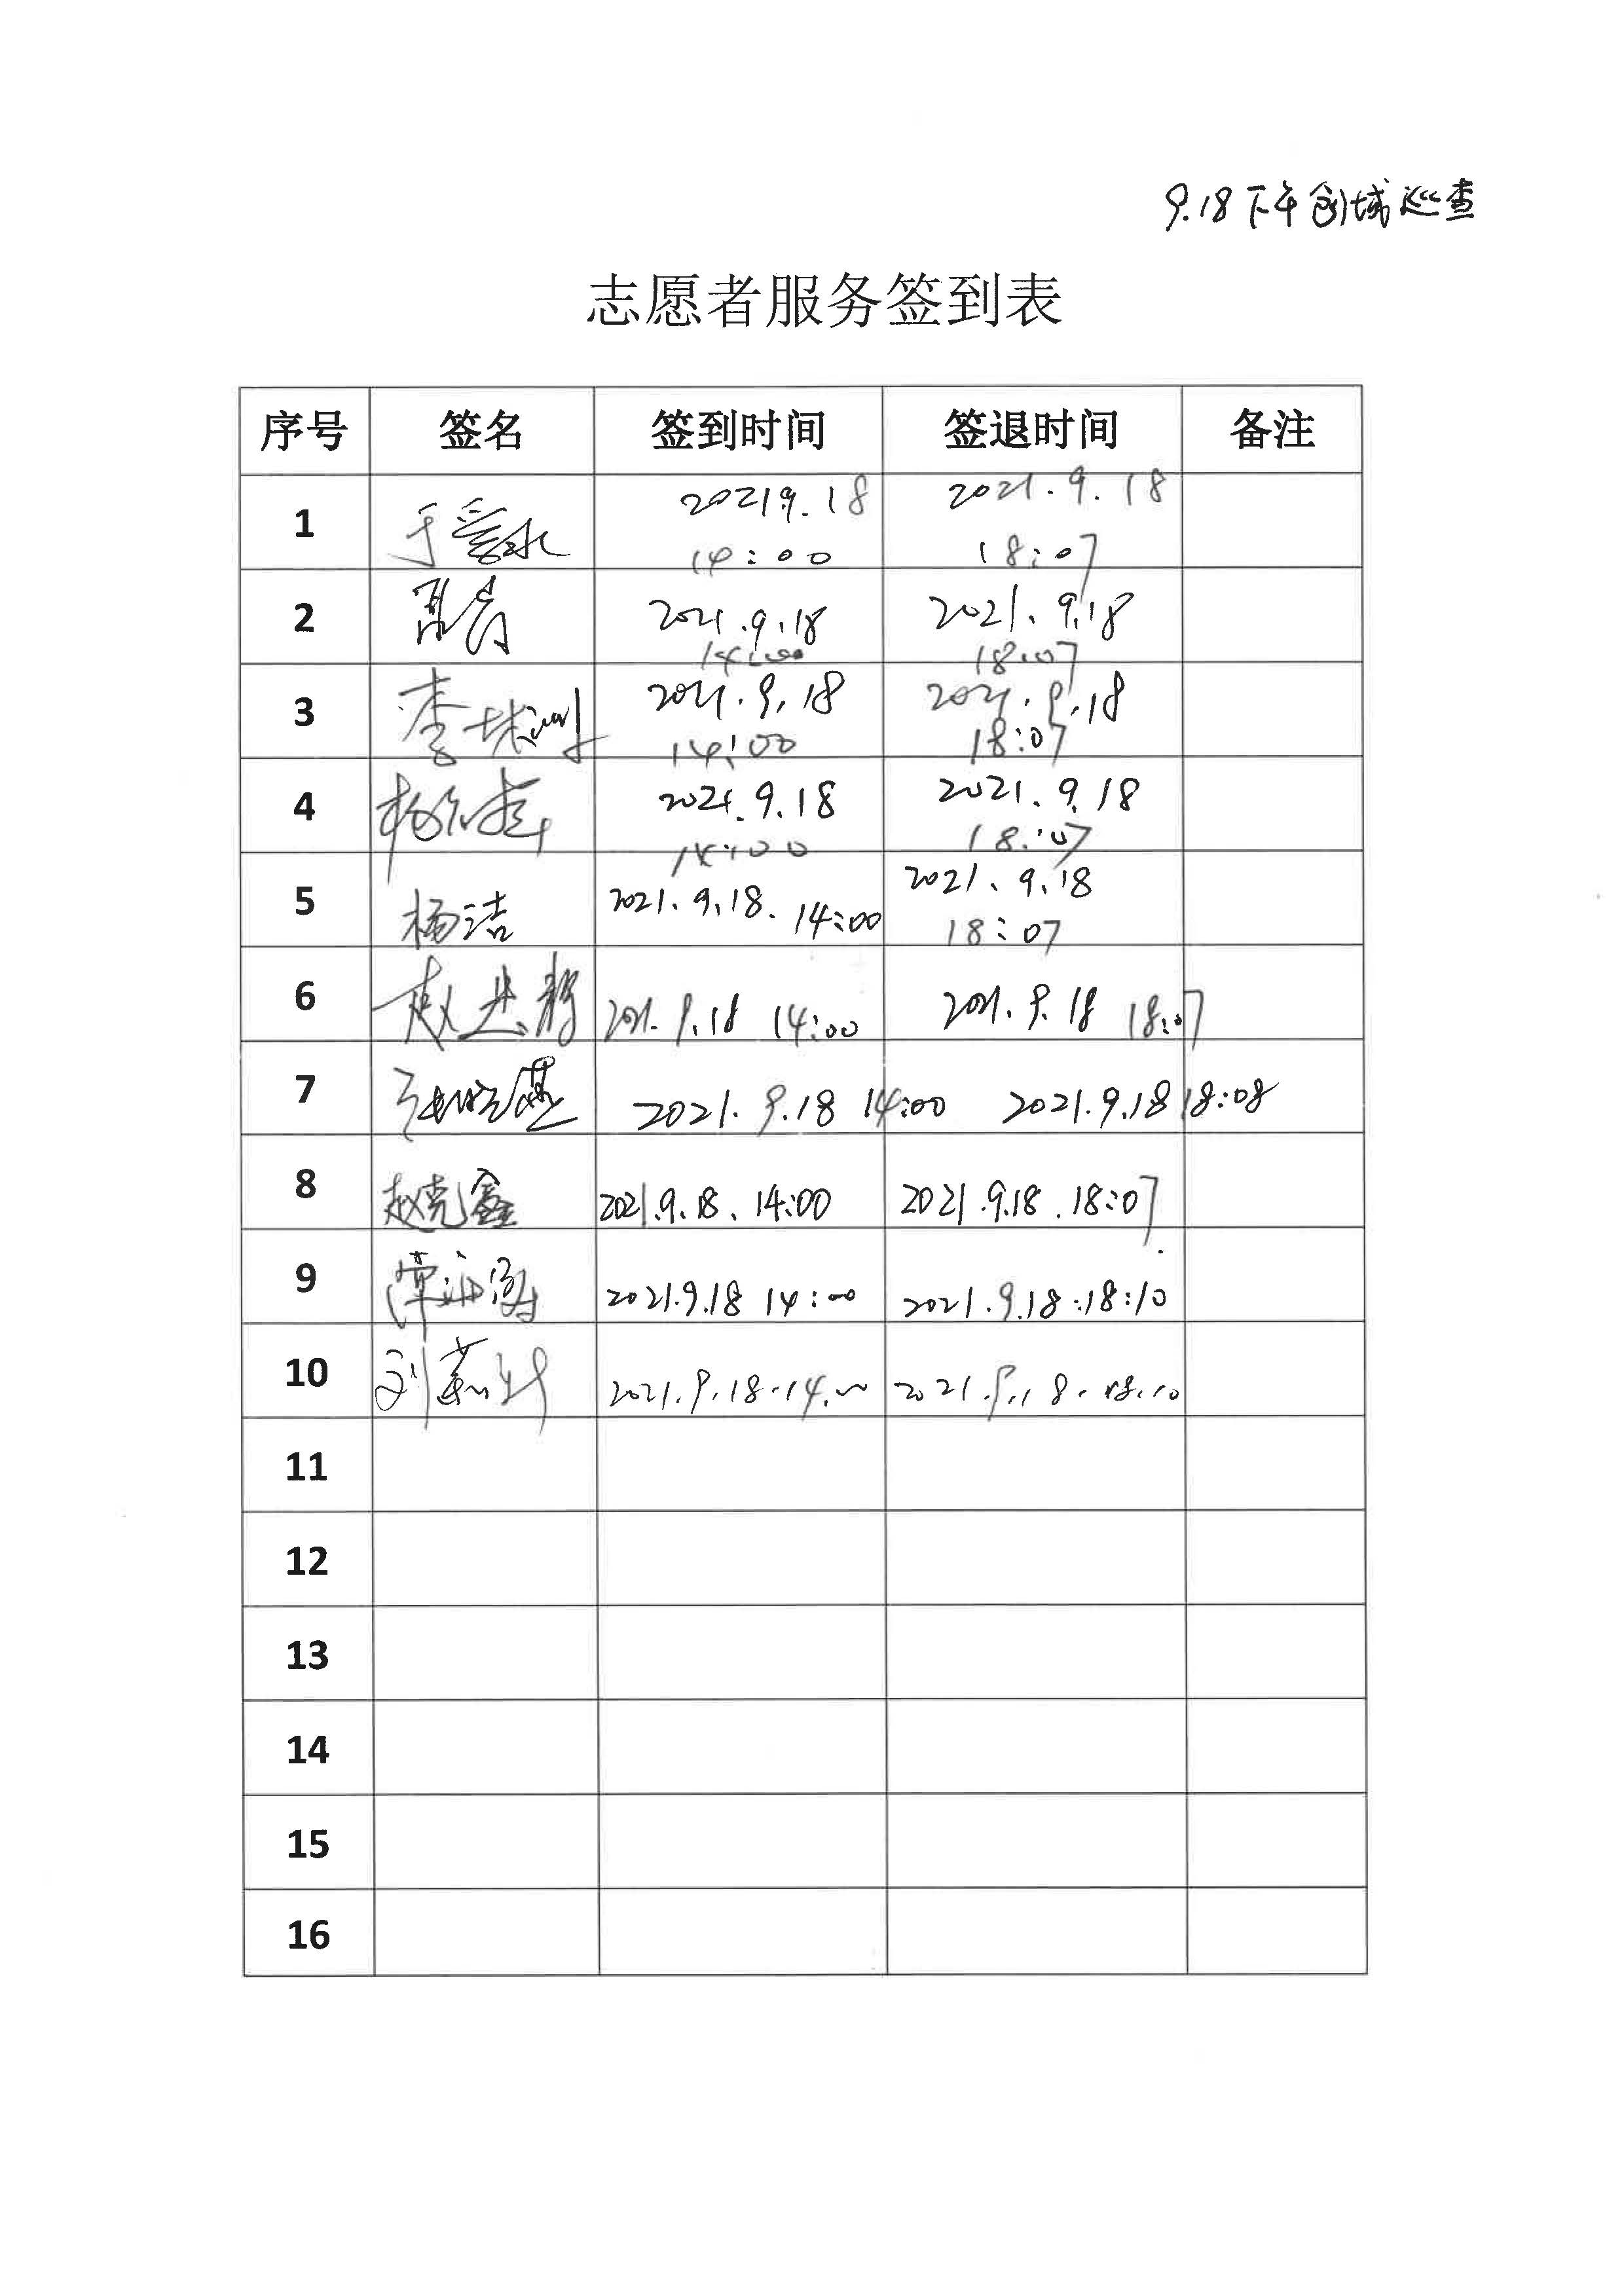 9.18下午创城巡查
志愿者服务签到表
序号 签名 签到时间 签退时间 备注
1 于 2021 9.18 2021.9.18
14:00 18:07
2 2021.9.18 2021.9.18
14:00 18:07
3 李 2021.9.18 2021.9.18
14:00 18:07
4 杨 2021.9.18 2021.9.18
14:00 18:07
5 杨洁 2021.9.18. 14:00 2021.9.18
18:07
6 赵 2021.9.18 14:00 2021.9.18 18:07
7 2021.9.18 14:00 2021.9.18 18:08
8 赵克鑫 2021.9.18、14:00 2021.9.18.18:07
9 2021.9.18 14:00 2021.9.18.18:10
10 刘 2021.9.18.14:00 2021.9.18.18:10
11
12
13
14
15
16